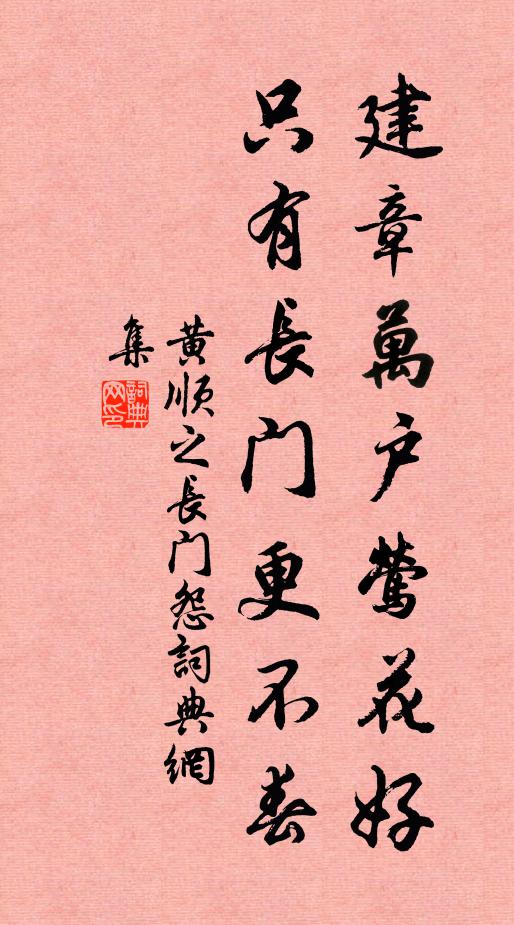 建章萬户鶯花好
只有長門更不春
黄順之長門怨詞典網
集
詞典
网印